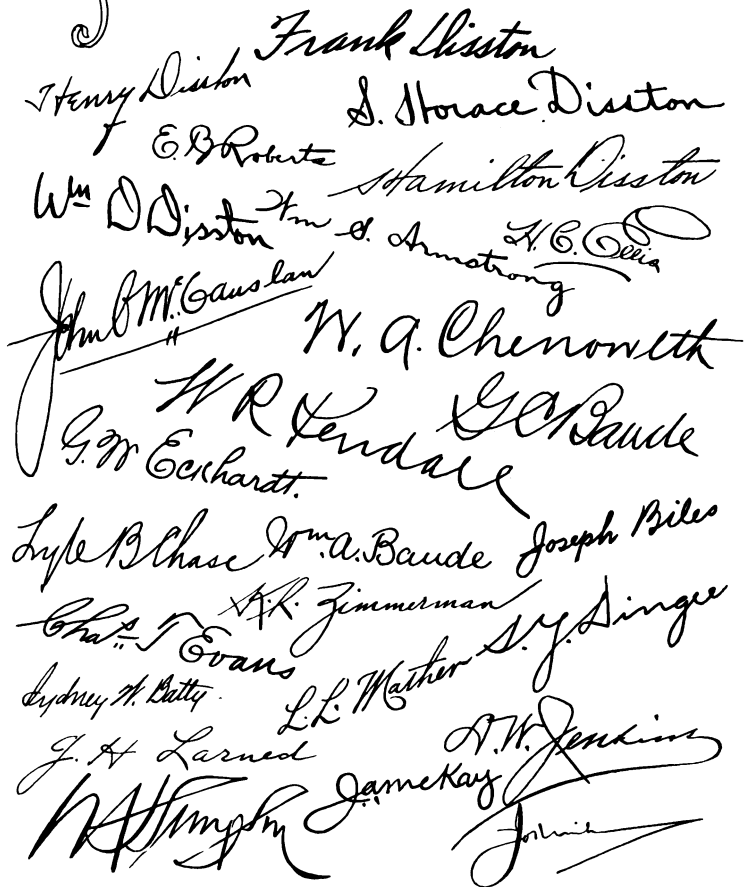 Frank Disston
Henry Disston
S. Horace Disston
E. B. Roberts
Hamilton Disston
Wm D Disston
Wm S. Armstrong
H. C. Ellis
John P McCauslan
W. A. Chenoweth
W R Kendall
G C Baude
G. W Eckhardt.
Lyle B Chase
Wm. A. Baude
Joseph Biles
K. R. Zimmerman
Chas T Evans
S. Y. Singer
Sydney W. Batty
L. L. Mather
A. W. Jenkins
J. H Larned
Kay